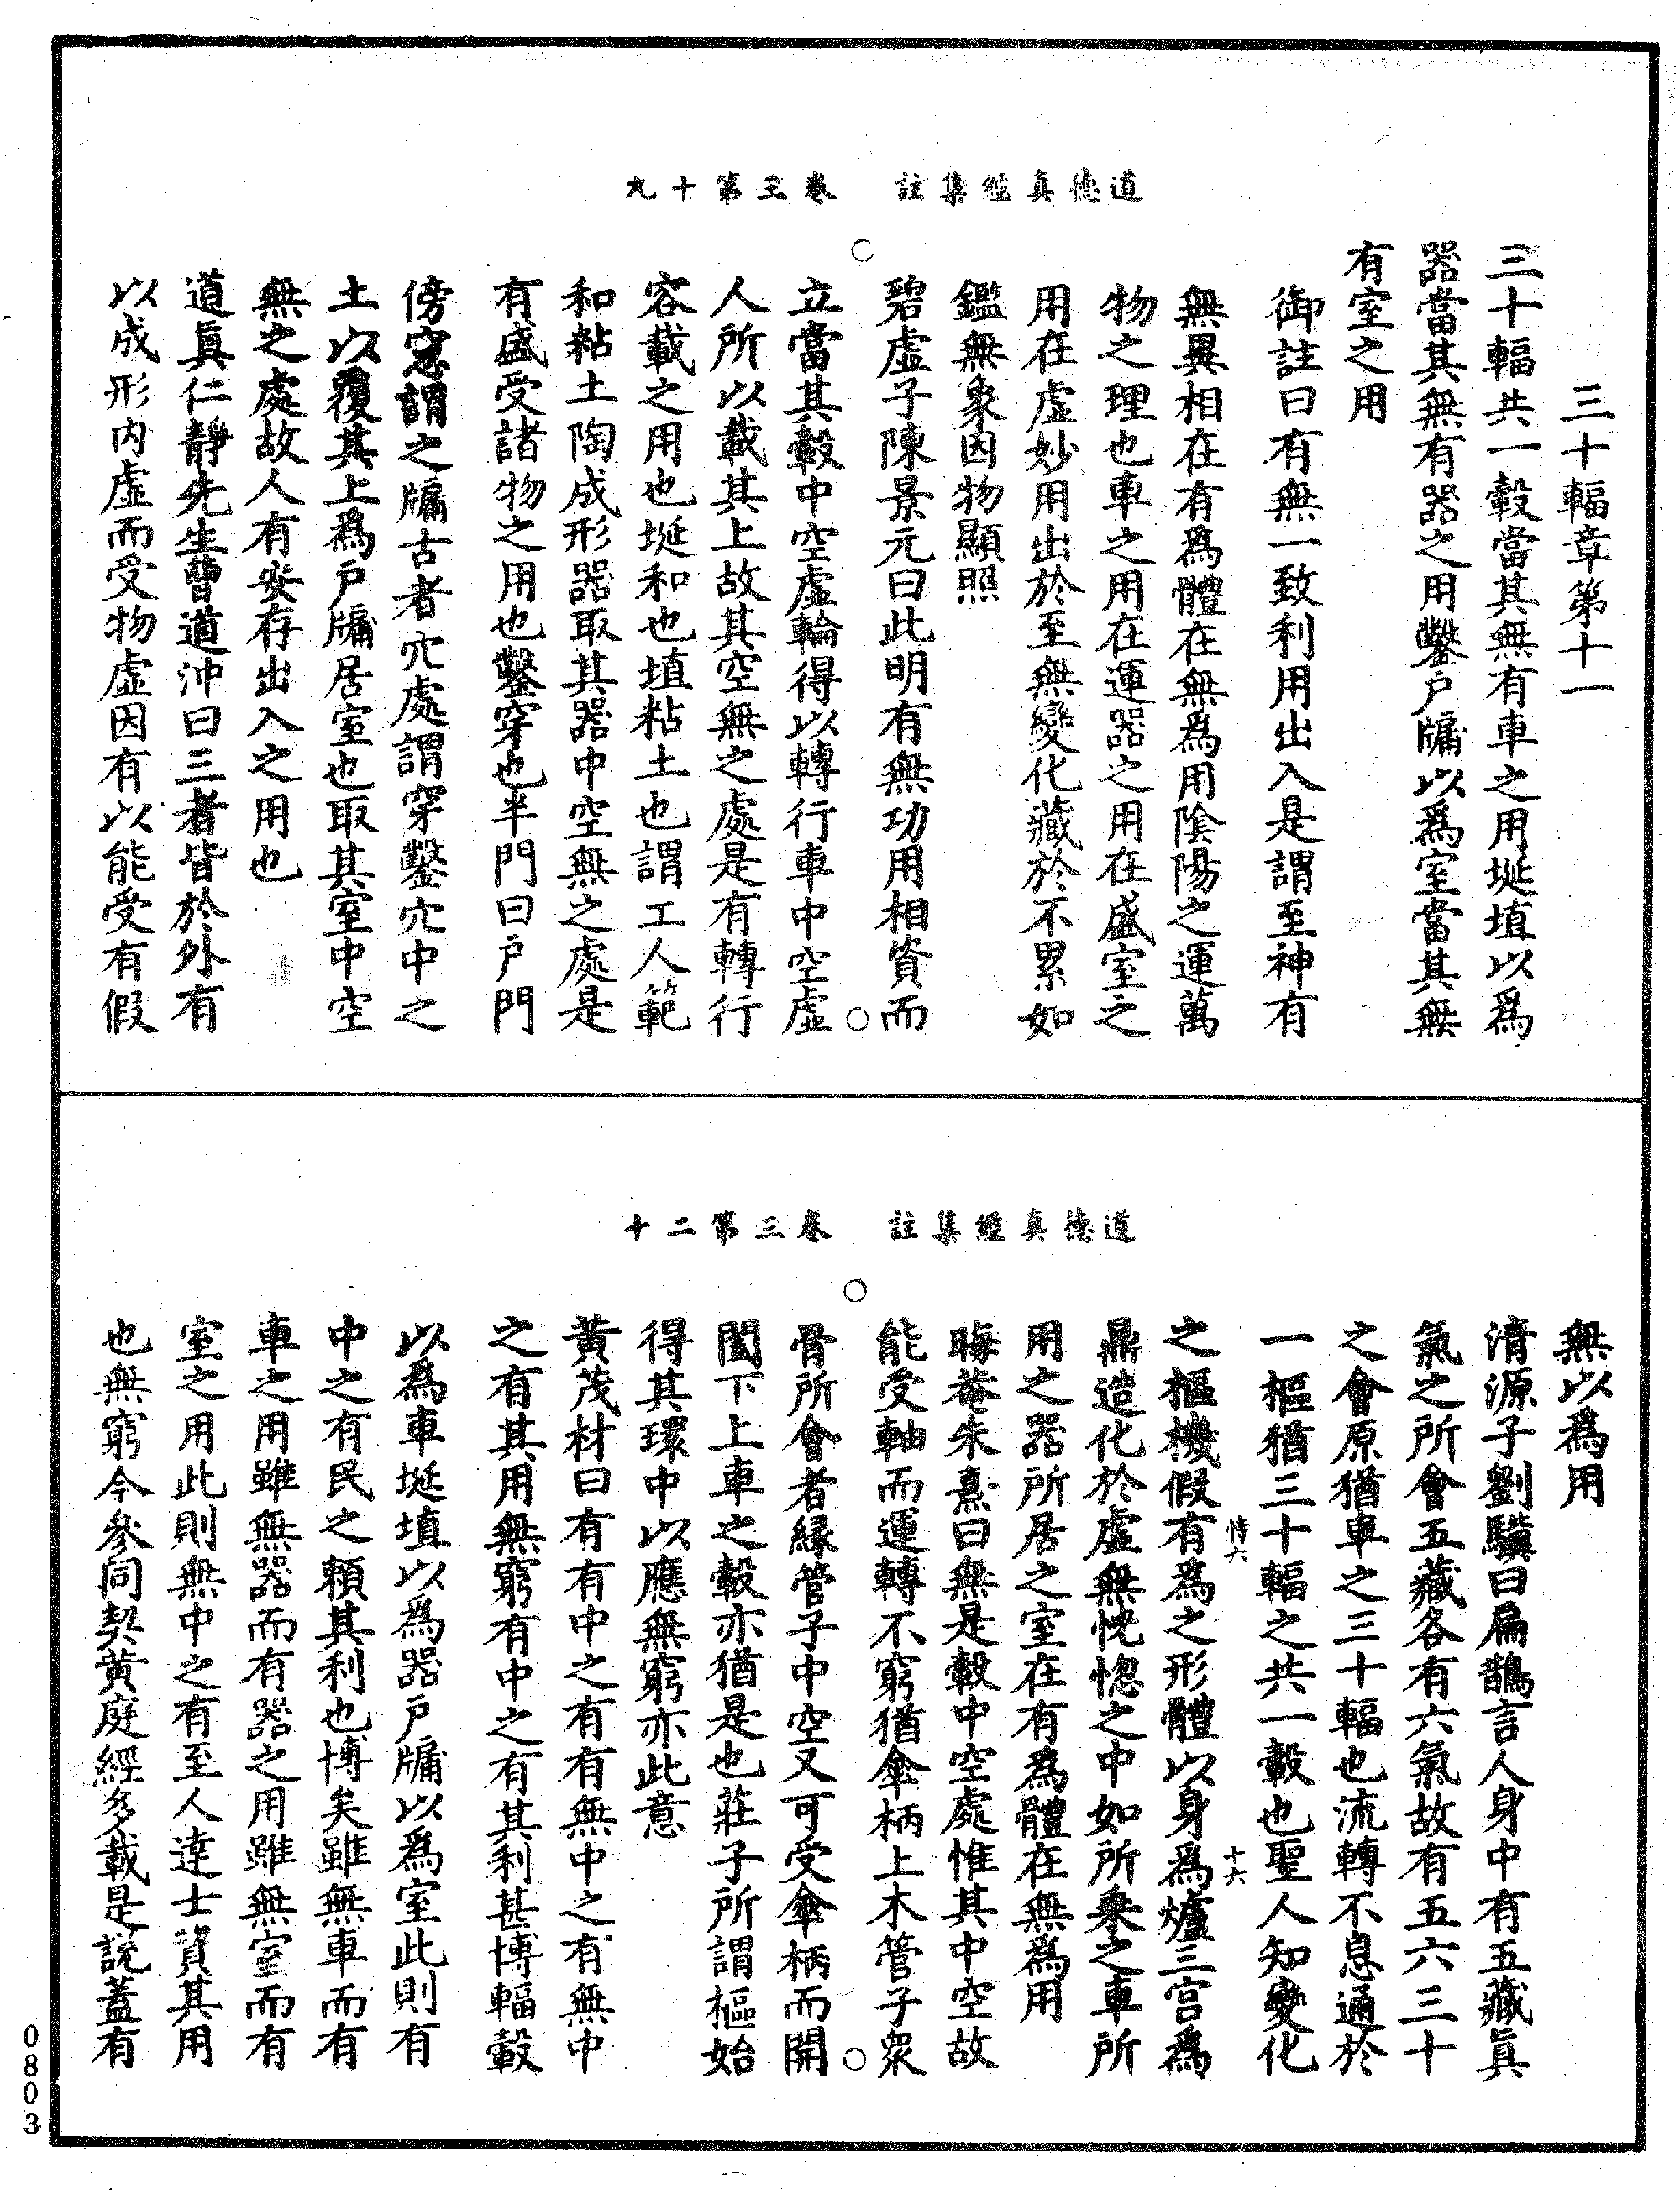 道德真經集註　卷三第十九
三十輻章第十一
三十輻共一轂當其無有車之用埏埴以爲
器當其無有器之用鑿戶牖以爲室當其無
有室之用
御註曰有無一致利用出入是謂至神有
無異相在有爲體在無爲用陰陽之運萬
物之理也車之用在運器之用在盛室之
用在虛妙用出於至無變化藏於不累如
鑑無象因物顯照
碧虛子陳景元曰此明有無功用相資而
立當其轂中空虛輪得以轉行車中空虛
人所以載其上故其空無之處是有轉行
容載之用也埏和也埴粘土也謂工人範
和粘土陶成形器取其器中空無之處是
有盛受諸物之用也鑿穿也半門曰戶門
傍窓謂之牖古者穴處謂穿鑿穴中之
土以覆其上爲戶牖居室也取其室中空
無之處故人有安存出入之用也
道眞仁靜先生曹道沖曰三者皆於外有
以成形内虛而受物虛因有以能受有假
道德真經集註　卷三第二十
無以爲用
清源子劉驥曰扁鵲言人身中有五藏眞
氣之所會五藏各有六氣故有五六三十
之會原猶車之三十輻也流轉不息通於
一樞猶三十輻之共一轂也聖人知變化
之樞機假有爲之形體以身爲爐三宫爲
鼎造化於虛無恍惚之中如所乗之車所
用之器所居之室在有爲體在無爲用
晦菴朱熹曰無是轂中空處惟其中空故
能受軸而運轉不窮猶傘柄上木管子衆
骨所會者縁管子中空又可受傘柄而開
闔下上車之轂亦猶是也莊子所謂樞始
得其環中以應無窮亦此意
黄茂材曰有有中之有有無中之有無中
之有其用無窮有中之有其利甚博輻轂
以爲車埏埴以爲器戶牖以爲室此則有
中之有民之賴其利也博矣雖無車而有
車之用雖無器而有器之用雖無室而有
室之用此則無中之有至人達士資其用
也無窮今參同契黄庭經多載是説蓋有
慱六
十六
0803